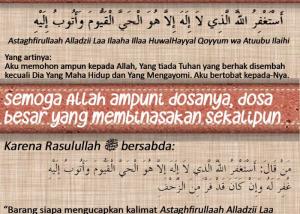 أَسْتَغْفِرُ اللَّهَ الَّذِي لَا إِلَهَ إِلَّا هُوَ الْحَيُّ الْقَيُّومُ وَأَتُوبُ إِلَيْهِ
Astaghfirullaah Alladzii Laa Ilaaha Illaa HuwalHayyal Qoyyum wa Atuubu Ilaihi
Yang artinya:
Aku memohon ampun kepada Allah, Yang tiada Tuhan yang berhak disembah
kecuali Dia Yang Maha Hidup dan Yang Mengayomi. Aku bertobat kepada-Nya.
Semoga Allah ampuni dosanya, dosa
besar yang membinasakan sekalipun.
Karena Rasulullah ﷺ bersabda:
مَنْ قَالَ: أَسْتَغْفِرُ اللَّهَ الَّذِي لَا إِلَهَ إِلَّا هُوَ الْحَيُّ الْقَيُّومُ وَأَتُوبُ إِلَيْهِ
غُفِرَ لَهُ وَإِنْ كَانَ قَدْ فَرَّ مِنَ الزَّحْفِ
"Barang siapa mengucapkan kalimat Astaghfirullaah Alladzii Laa